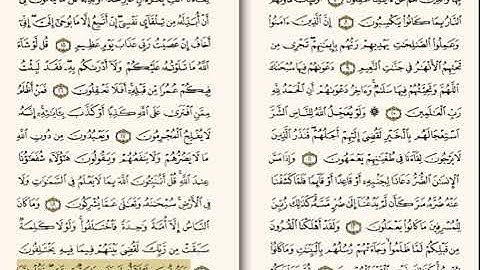 ٱلنَّارُ بِمَا كَانُوا۟ يَكْسِبُونَ ٨ إِنَّ ٱلَّذِينَ ءَامَنُوا۟
وَعَمِلُوا۟ ٱلصَّٰلِحَٰتِ يَهْدِيهِمْ رَبُّهُم بِإِيمَٰنِهِمْ تَجْرِى مِن
تَحْتِهِمُ ٱلْأَنْهَٰرُ فِى جَنَّٰتِ ٱلنَّعِيمِ ٩ دَعْوَىٰهُمْ فِيهَا سُبْحَٰنَكَ
ٱللَّهُمَّ وَتَحِيَّتُهُمْ فِيهَا سَلَٰمٌ وَءَاخِرُ دَعْوَىٰهُمْ أَنِ ٱلْحَمْدُ لِلَّهِ
رَبِّ ٱلْعَٰلَمِينَ ١٠ ۞ وَلَوْ يُعَجِّلُ ٱللَّهُ لِلنَّاسِ ٱلشَّرَّ
ٱسْتِعْجَالَهُم بِٱلْخَيْرِ لَقُضِىَ إِلَيْهِمْ أَجَلُهُمْ فَنَذَرُ ٱلَّذِينَ
لَا يَرْجُونَ لِقَآءَنَا فِى طُغْيَٰنِهِمْ يَعْمَهُونَ ١١ وَإِذَا مَسَّ
ٱلْإِنسَٰنَ ٱلضُّرُّ دَعَانَا لِجَنۢبِهِۦٓ أَوْ قَاعِدًا أَوْ قَآئِمًا فَلَمَّا كَشَفْنَا
عَنْهُ ضُرَّهُۥ مَرَّ كَأَن لَّمْ يَدْعُنَآ إِلَىٰ ضُرٍّ مَّسَّهُۥ كَذَٰلِكَ زُيِّنَ
لِلْمُسْرِفِينَ مَا كَانُوا۟ يَعْمَلُونَ ١٢ وَلَقَدْ أَهْلَكْنَا ٱلْقُرُونَ
مِن قَبْلِكُمْ لَمَّا ظَلَمُوا۟ وَجَآءَتْهُمْ رُسُلُهُم بِٱلْبَيِّنَٰتِ وَمَا كَانُوا۟
أَنْ أُبَدِّلَهُۥ مِن تِلْقَآئِ نَفْسِىٓ إِنْ أَتَّبِعُ إِلَّا مَا يُوحَىٰٓ إِلَىَّ إِنِّىٓ
أَخَافُ إِنْ عَصَيْتُ رَبِّى عَذَابَ يَوْمٍ عَظِيمٍ ١٥ قُل لَّوْ شَآءَ
ٱللَّهُ مَا تَلَوْتُهُۥ عَلَيْكُمْ وَلَآ أَدْرَىٰكُم بِهِۦ فَقَدْ لَبِثْتُ
فِيكُمْ عُمُرًا مِّن قَبْلِهِۦٓ أَفَلَا تَعْقِلُونَ ١٦ فَمَنْ أَظْلَمُ
مِمَّنِ ٱفْتَرَىٰ عَلَى ٱللَّهِ كَذِبًا أَوْ كَذَّبَ بِـَٔايَٰتِهِۦٓ إِنَّهُۥ
لَا يُفْلِحُ ٱلْمُجْرِمُونَ ١٧ وَيَعْبُدُونَ مِن دُونِ ٱللَّهِ
مَا لَا يَضُرُّهُمْ وَلَا يَنفَعُهُمْ وَيَقُولُونَ هَٰٓؤُلَآءِ شُفَعَٰٓؤُنَا
عِندَ ٱللَّهِ قُلْ أَتُنَبِّـُٔونَ ٱللَّهَ بِمَا لَا يَعْلَمُ فِى ٱلسَّمَٰوَٰتِ وَلَا
فِى ٱلْأَرْضِ سُبْحَٰنَهُۥ وَتَعَٰلَىٰ عَمَّا يُشْرِكُونَ ١٨ وَمَا كَانَ
ٱلنَّاسُ إِلَّآ أُمَّةً وَٰحِدَةً فَٱخْتَلَفُوا۟ وَلَوْلَا كَلِمَةٌ
سَبَقَتْ مِن رَّبِّكَ لَقُضِىَ بَيْنَهُمْ فِيمَا فِيهِ يَخْتَلِفُونَ